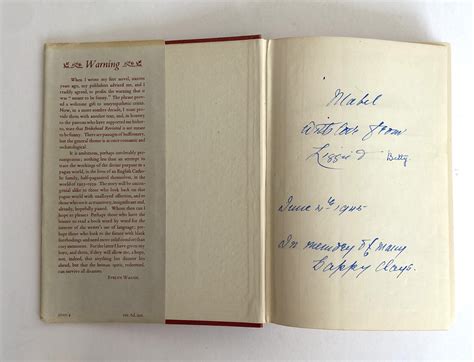 Warning
When I wrote my first novel, sixteen
years ago, my publishers advised me, and I
readily agreed, to prefix the warning that it
was "meant to be funny." The phrase proved
a welcome gift to unsympathetic critics.
Now, in a more sombre decade, I must provide
them with another text, and, in honesty
to the patrons who have supported me hitherto,
state that Brideshead Revisited is not
meant to be funny. There are passages of buffoonery,
but the general theme is at once romantic and
eschatological.
It is ambitious, perhaps intolerably presumptuous;
nothing less than an attempt to
trace the workings of the divine purpose in a
pagan world, in the lives of an English Catholic
family, half-paganized themselves, in the
world of 1923-1939. The story will be uncongenial
alike to those who look back on that
pagan world with unalloyed affection, and to
those who see it as transitory, insignificant and,
already, hopefully passed. Whom then can I
hope to please? Perhaps those who have the
leisure to read a book word by word for the
interest of the writer's use of language; perhaps
those who look to the future with black
forebodings and need more solid comfort than
rosy memories. For the latter I have given my
hero, and them, if they will allow me, a hope,
not, indeed, that anything but disaster lies
ahead, but that the human spirit, redeemed,
can survive all disasters.
EVELYN WAUGH
Mabel
with love from
Betty
June 1945
In memory of many
happy days.